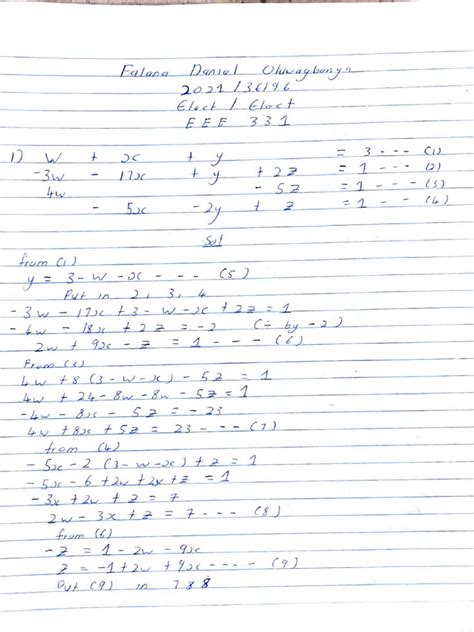 Falana Daniel Oluwagbenga
2021/36196
Elect / Elect
EEE 331
1) w + x + y = 3 --- (1)
-3w - 17x + y + 2z = 1 --- (2)
4w - 5z = 1 --- (3)
- 5x - 2y + z = 1 --- (4)
Sol
from (1)
y = 3 - w - x --- (5)
Put in 2, 3, 4
-3w - 17x + 3 - w - x + 2z = 1
-4w - 18x + 2z = -2 (÷ by -2)
2w + 9x - z = 1 --- (6)
From (3)
4w + 8(3 - w - x) - 5z = 1
4w + 24 - 8w - 8w - 5z = 1
-4w - 8x - 5z = -23
4w + 8x + 5z = 23 --- (7)
from (4)
-5x - 2(3 - w - x) + z = 1
-5x - 6 + 2w + 2x + z = 1
-3x + 2w + z = 7
2w - 3x + z = 7 --- (8)
from (6)
-z = 1 - 2w - 9x
z = -1 + 2w + 9x --- (9)
Put (9) in 7 & 8